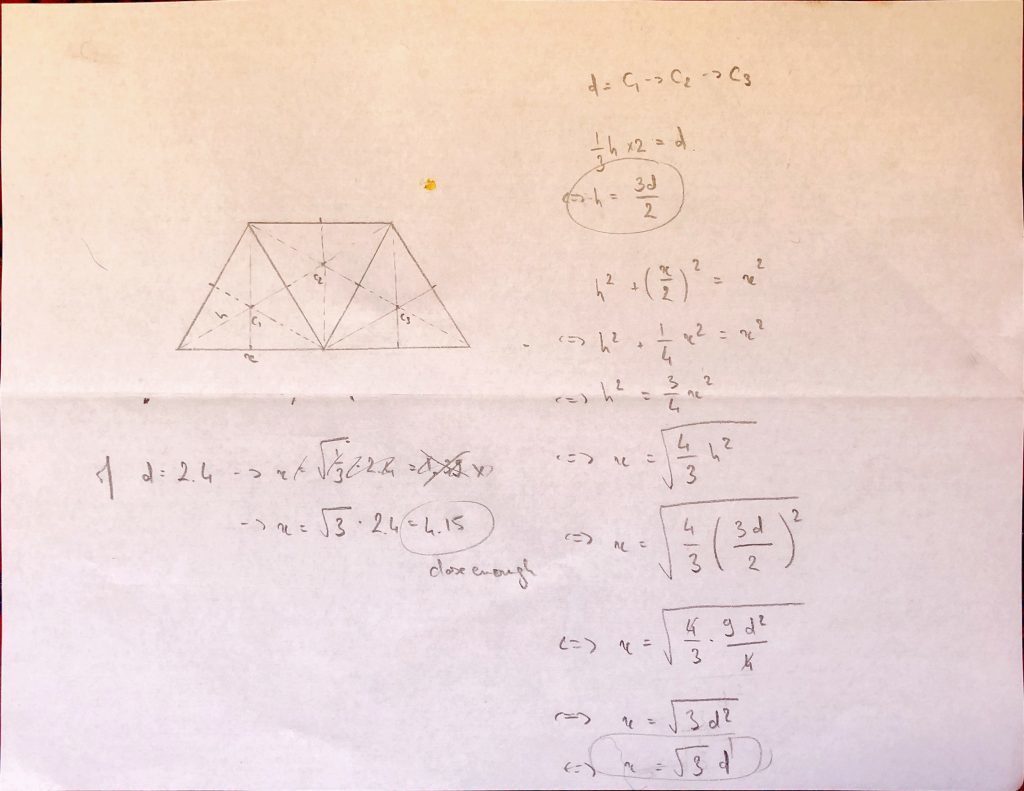 d = C₁ -> C₂ -> C₃
1/3 h x2 = d.
<=> h = 3d/2
h² + (x/2)² = x²
<=> h² + 1/4 x² = x²
<=> h² = 3/4 x²
<=> x = √(4/3 h²)
<=> x = √(4/3 (3d/2)²)
<=> x = √(4/3 · 9d²/4)
<=> x = √(3d²)
<=> x = √3 d
C₂
h C₁ C₃
x
if d = 2.4 -> x
-> x = √3 · 2.4 = 4.15
close enough